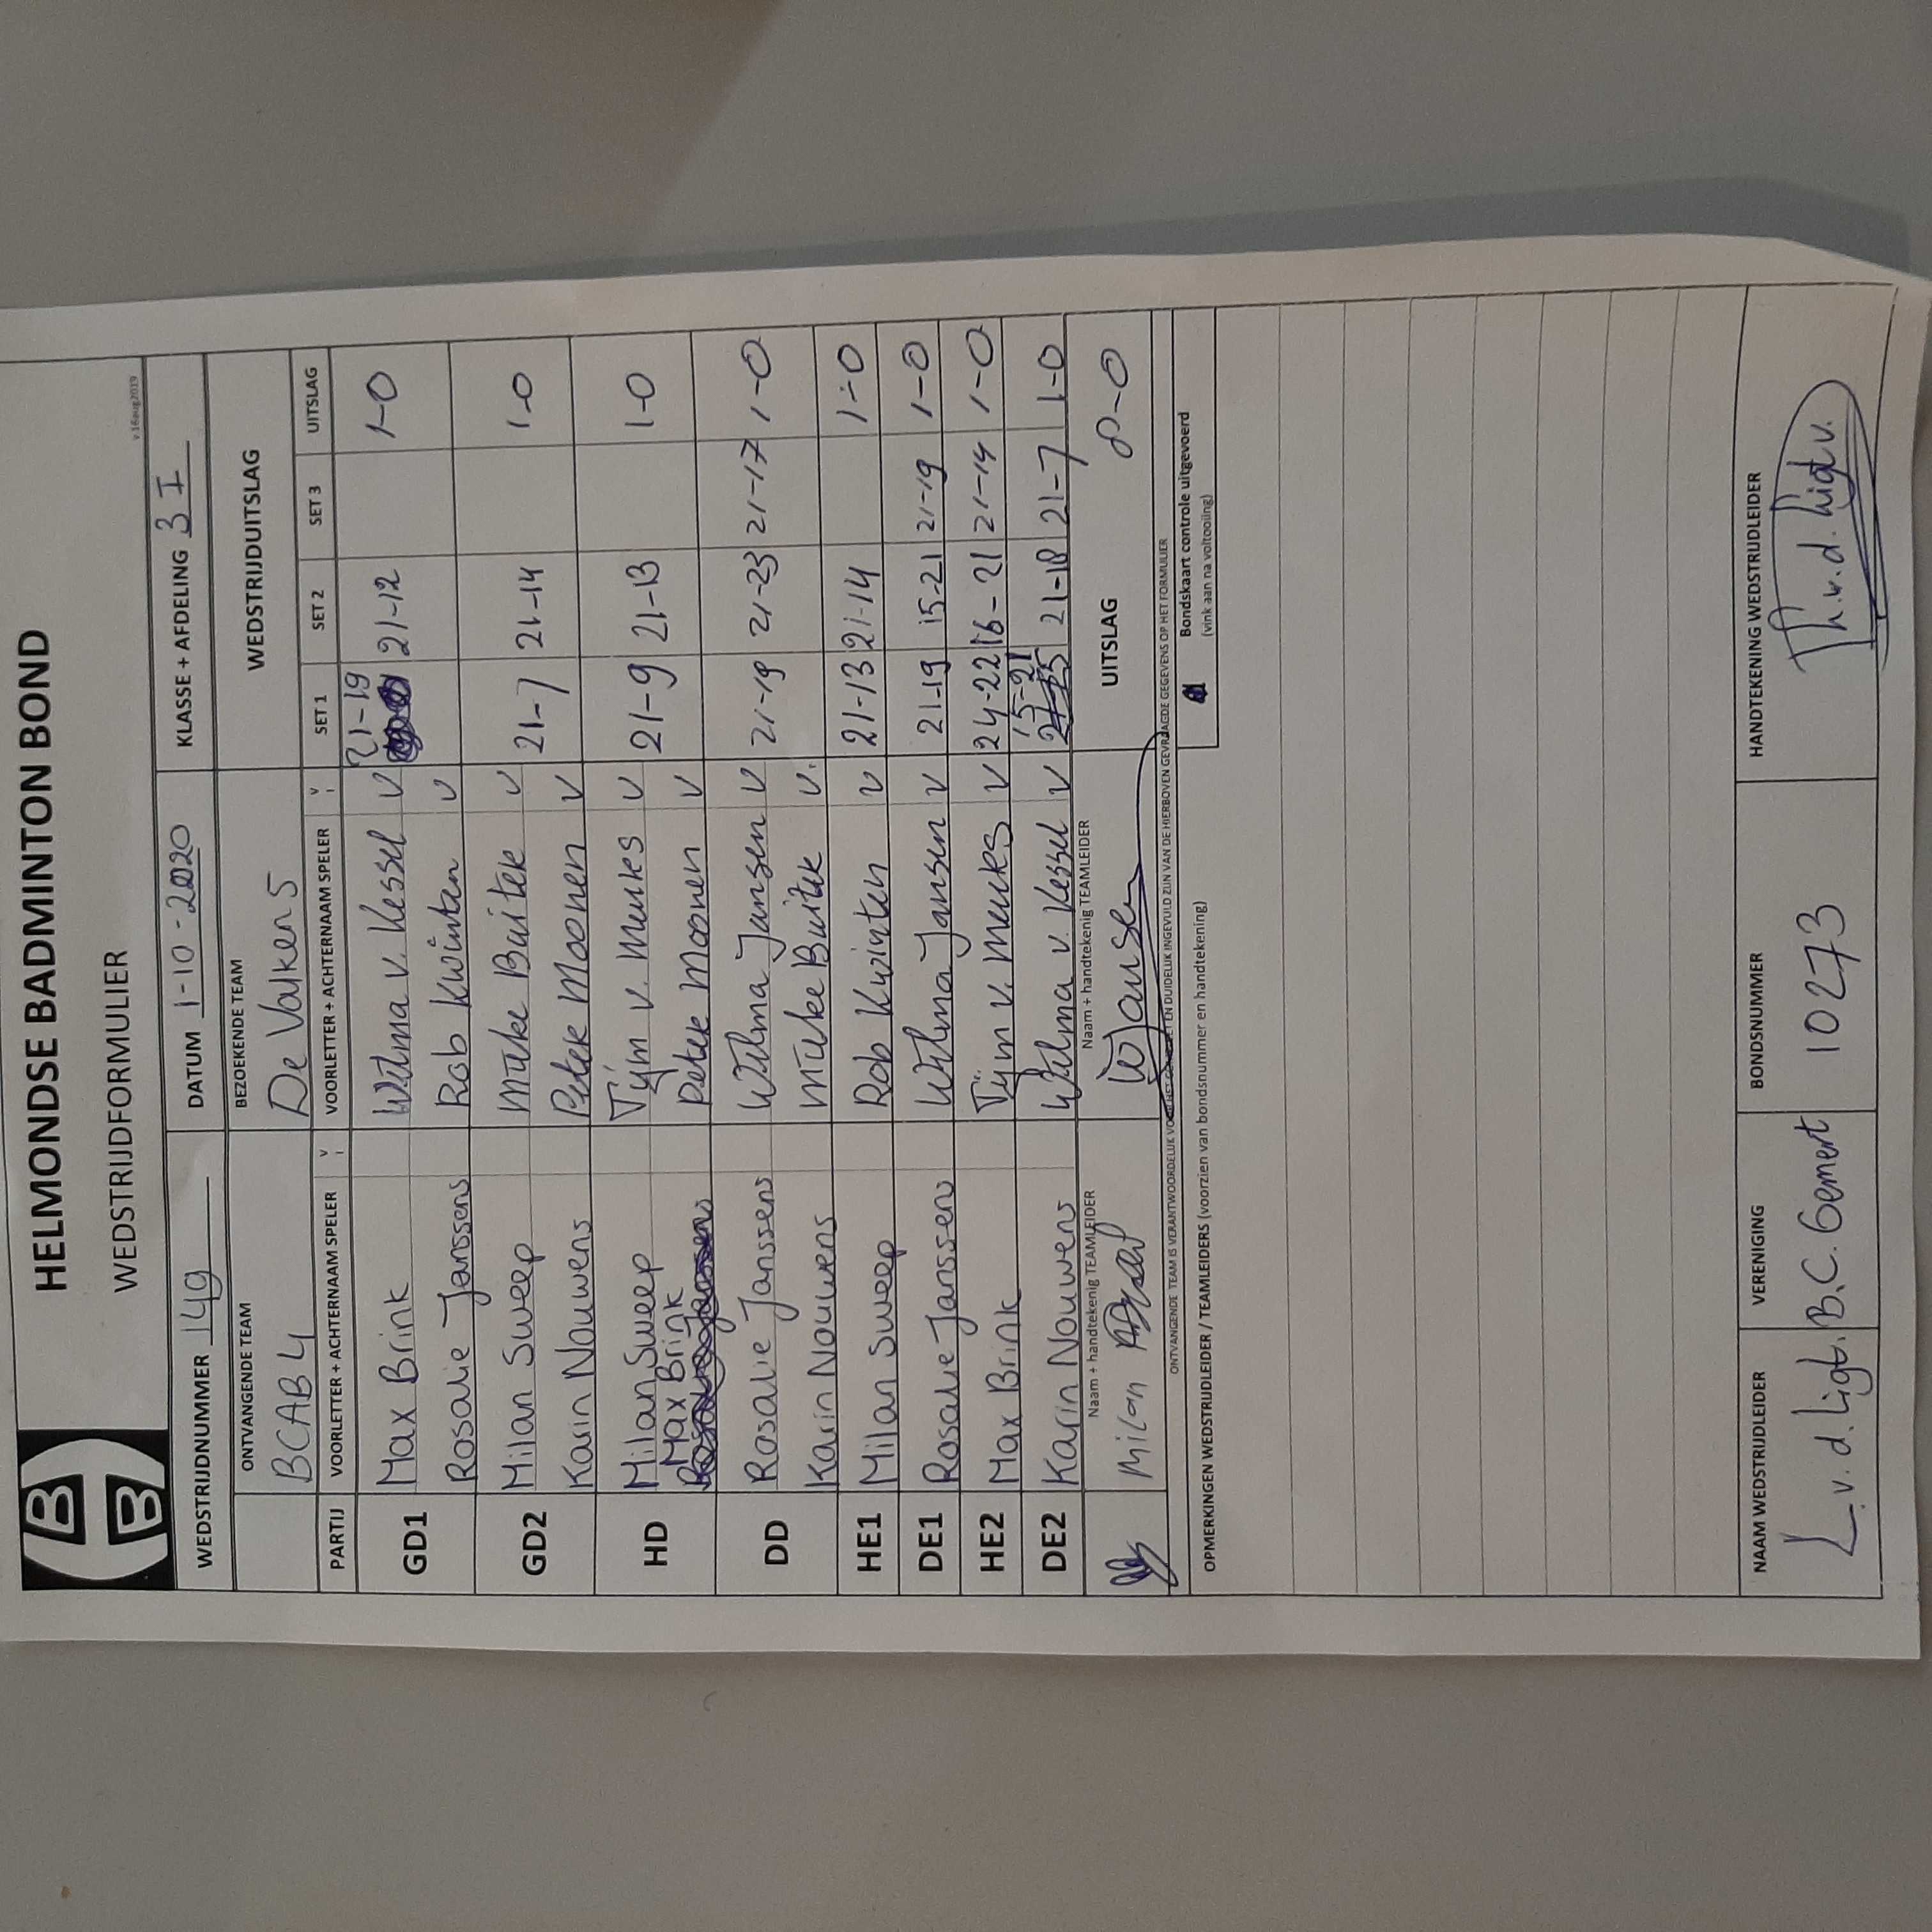 HELMONDSE BADMINTON BOND
WEDSTRIJDFORMULIER
v.16aug2019
WEDSTRIJDNUMMER 149 DATUM 1-10-2020 KLASSE + AFDELING 3 I
ONTVANGENDE TEAM BEZOEKENDE TEAM WEDSTRIJDUITSLAG
BCAB 4 De Valken 5
PARTIJ VOORLETTER + ACHTERNAAM SPELER v VOORLETTER + ACHTERNAAM SPELER v SET 1 SET 2 SET 3 UITSLAG
GD1 Max Brink Wilma v. Kessel v 21-19 21-12 1-0
Rosalie Janssens Rob Kwinten v
GD2 Milan Sweep Mieke Buitek v 21-7 21-14 1-0
Karin Nouwens Peter Moonen v
HD Milan Sweep Tijm v. Meurkes v 21-9 21-13 1-0
Max Brink Peter Moonen v
DD Rosalie Janssens Wilma Jansen v 21-19 21-23 21-17 1-0
Karin Nouwens Mieke Buitek v.
HE1 Milan Sweep Rob Kwinten v 21-13 21-14 1-0
DE1 Rosalie Janssens Wilma Jansen v 21-19 15-21 21-19 1-0
HE2 Max Brink Tijm v. Meurkes v 24-22 16-21 21-14 1-0
DE2 Karin Nouwens Wilma v. Kessel v 15-21 21-18 21-7 1-0
Naam + handtekenig TEAMLEIDER Naam + handtekenig TEAMLEIDER
Milan WJansen UITSLAG 8-0
ONTVANGENDE TEAM IS VERANTWOORDELIJK VOOR HET COMPLEET EN DUIDELIJK INGEVULD ZIJN VAN DE HIERBOVEN GEVRAAGDE GEGEVENS OP HET FORMULIER
Bondskaart controle uitgevoerd
(vink aan na voltooiing)
OPMERKINGEN WEDSTRIJDLEIDER / TEAMLEIDERS (voorzien van bondsnummer en handtekening)
NAAM WEDSTRIJDLEIDER VERENIGING BONDSNUMMER HANDTEKENING WEDSTRIJDLEIDER
L. v. d. Ligt. B.C. Gemert 10273 Th.v.d. Ligt v.